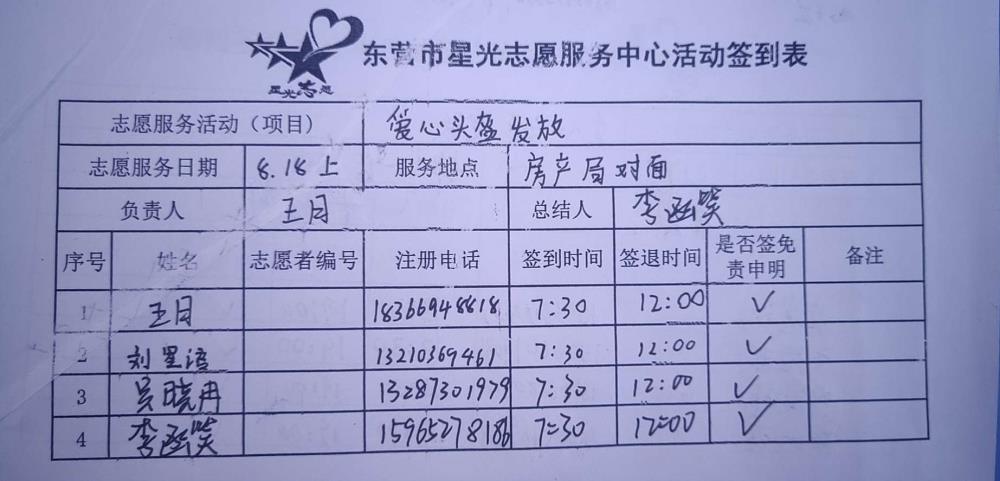 东营市星光志愿服务中心活动签到表
星光志愿
志愿服务活动（项目） 爱心头盔发放
志愿服务日期 8.18上 服务地点 房产局对面
负责人 王月 总结人 李函笑
序号 姓名 志愿者编号 注册电话 签到时间 签退时间 是否签免责申明 备注
1 王月 18366948818 7:30 12:00 ✓
2 刘星语 13210369461 7:30 12:00 ✓
3 吴晓冉 13287301979 7:30 12:00 ✓
4 李函笑 15965278186 7:30 12:00 ✓